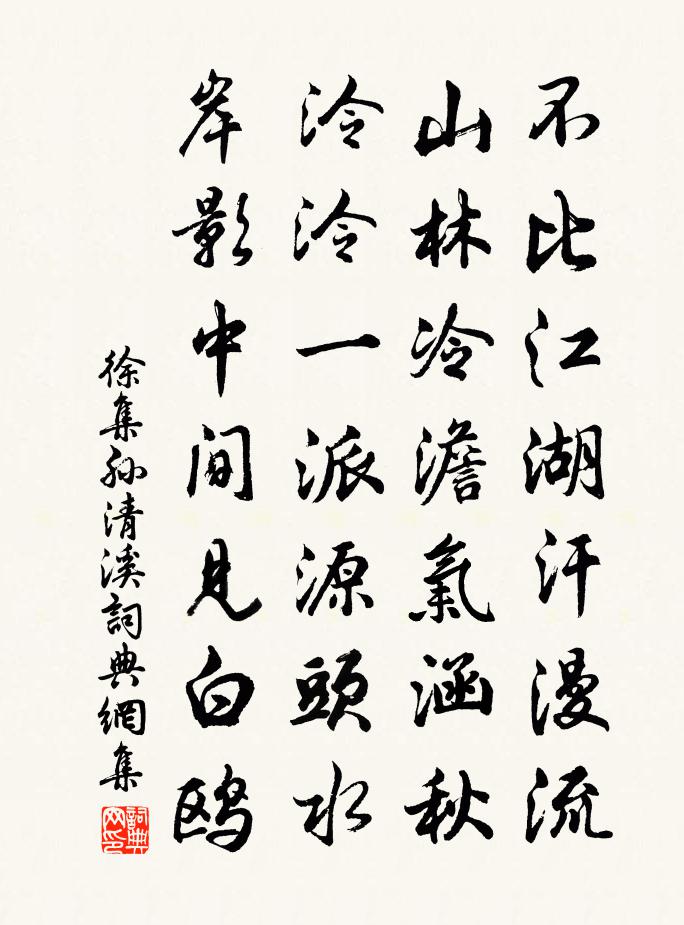 不比江湖汗漫流
山林冷澹氣涵秋
泠泠一派源頭水
岸影中間見白鷗
徐集孙清溪詞典網集
詞典网印